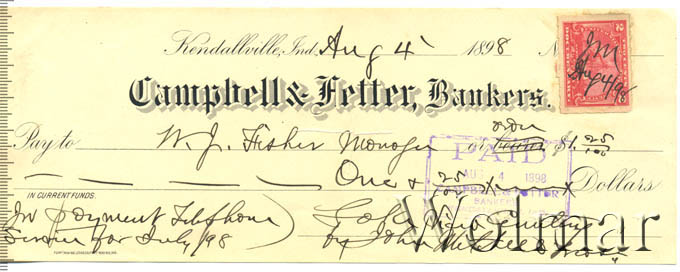 Kendallville, Ind. Aug 4 1898 N
JM
Aug 4/98
Campbell & Fetter, Bankers.
Pay to W. J. Fisher Manager or order $1.25/100
One & 25/100 Dollars
PAID
AUG 4 1898
CAMPBELL & FETTER
BANKERS
IN CURRENT FUNDS.
In payment Telephone
Service for July/98
by John
Wolmar